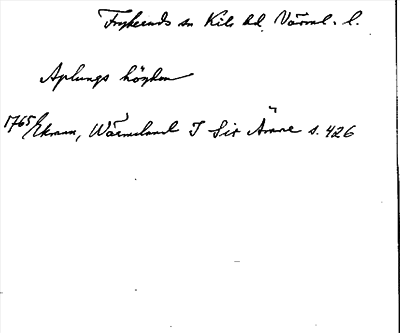 Frykeruds sn Kils hd. Värml. l.
Aplungs högden
1765 Ekman, Wärmeland I Sir Änne s. 426